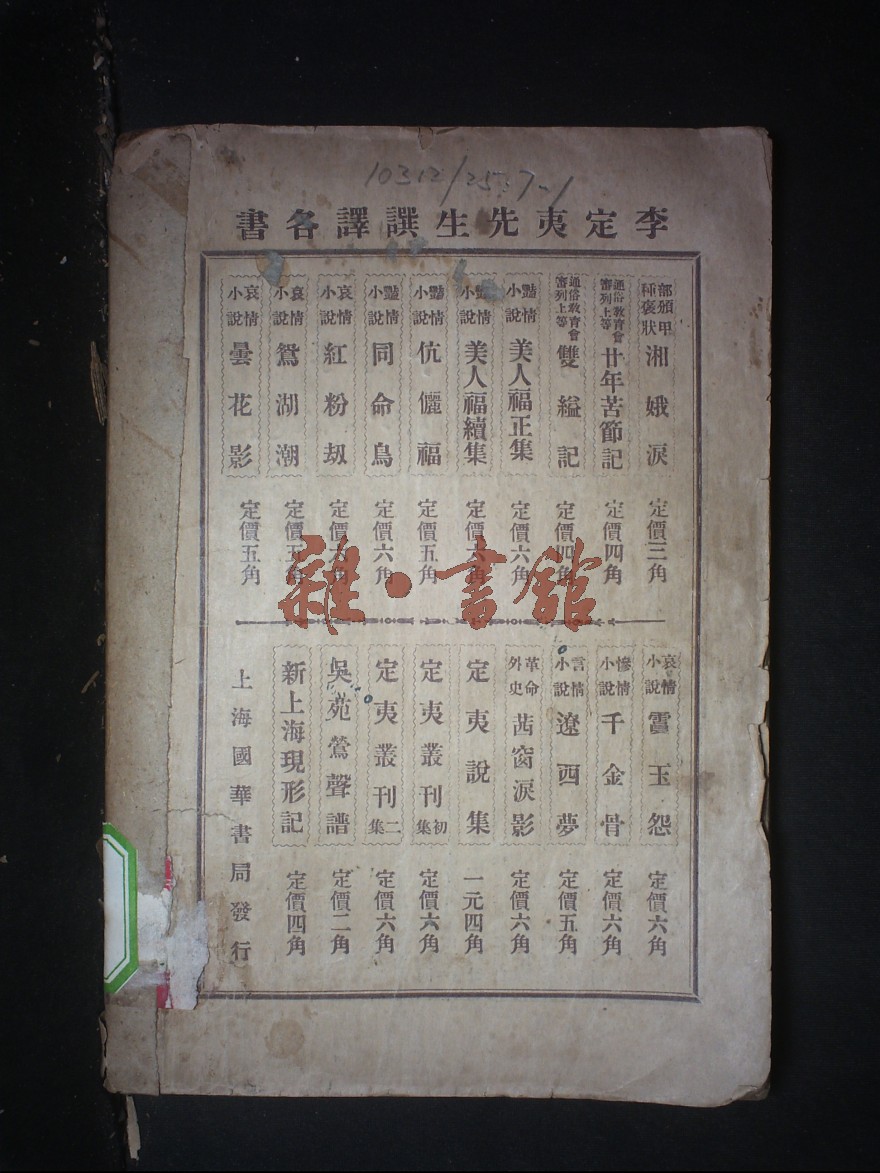 10312/2537-1
李定夷先生譔譯各書
部頒甲種褒狀 湘娥淚 定價三角
通俗教育會審列上等 廿年苦節記 定價四角
通俗教育會審列上等 雙縊記 定價四角
豔情小說 美人福正集 定價六角
豔情小說 美人福續集 定價六角
豔情小說 伉儷福 定價五角
豔情小說 同命鳥 定價六角
哀情小說 紅粉刼 定價六角
哀情小說 鴛湖潮 定價五角
哀情小說 曇花影 定價五角
哀情小說 霣玉怨 定價六角
慘情小說 千金骨 定價六角
言情小說 遼西夢 定價五角
革命外史 茜窗淚影 定價六角
定夷說集 一元四角
定夷叢刊初集 定價六角
定夷叢刊二集 定價六角
吳苑鶯聲譜 定價二角
新上海現形記 定價四角
上海國華書局發行
雜·書館